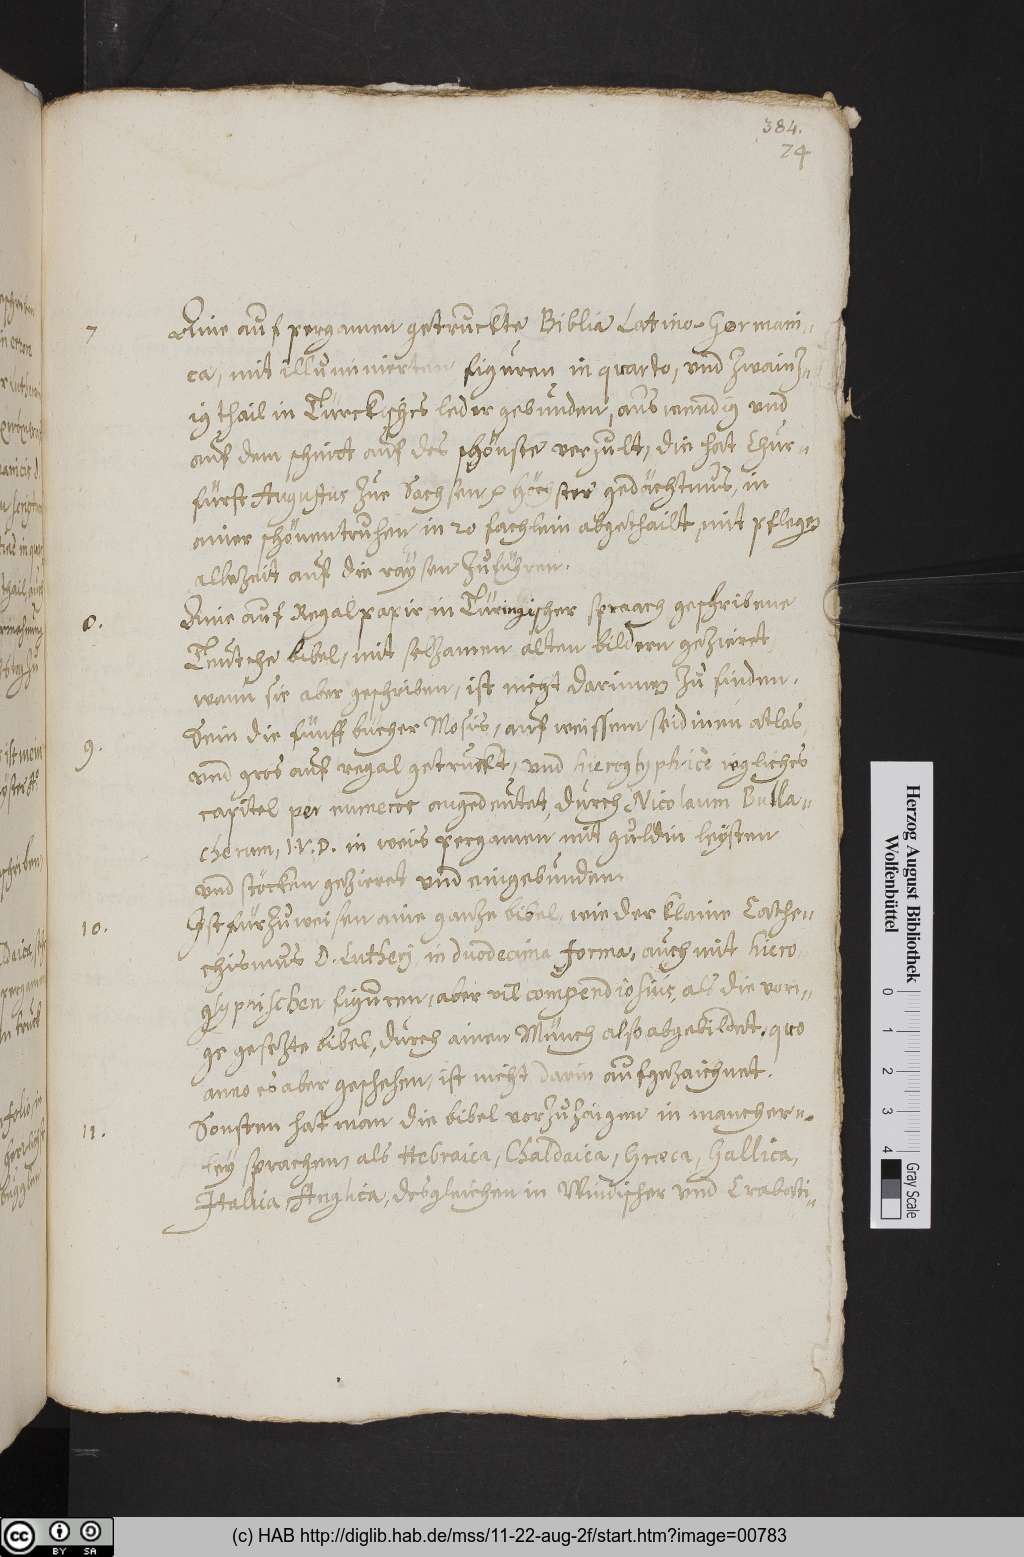 384.
74
7 Aine auf pergamen getruckte Biblia Latino-Germani-
ca, mit illuminierten figuren in quarto, und zwainz-
ig thail in Türckisches leder gebunden, auswendig und
auf dem schnidt auf des schönste verzult, die hat Chur-
fürst Augustus zue Sachsen höchster gedächtnus, in
ainer schönen truhen in 20 fachlein abgethailt, mit pflegen
allezeit auf die raÿsen zuführen.
8. Aine auf Regal papir in Türingischer spraach geschribene
Teutsche bibel, mit selzamen alten bildern gezieret,
wann sie aber geschriben, ist nicht darinnen zu finden.
9. Sein die fünff bücher Mosis, auf weissem seidinen atlas,
und gros auf regal getruckt, und hieroglyphicè iegliches
capitel per numeros angedeutet, durch Nicolaum Balla-
cherum, in weis pergamen mit guldin leÿsten
und stöcken gezieret und eingebunden.
10. Ist fürzuweisen aine ganze bibel, wie der klaine Cathe-
chismus D. Lutherj in duodecima forma, auch mit hiero-
glyphischen figuren, aber vil compendiosius, als die vori-
ge gesezte bibel, durch ainen Münch also abgebildet, quo
anno es aber geschehen, ist nicht darin aufgezaichnet.
11. Sonsten hat man die bibel vorzuzaigen in mancher-
leÿ sprachen, als Hebraica, Chaldaica, Græca, Gallica,
Italica, Anglica, desgleichen in Windischer und Crabati-
Herzog August Bibliothek
Wolfenbüttel
0 1 2 3 4
Gray Scale
CC BY SA
(c) HAB http://diglib.hab.de/mss/11-22-aug-2f/start.htm?image=00783